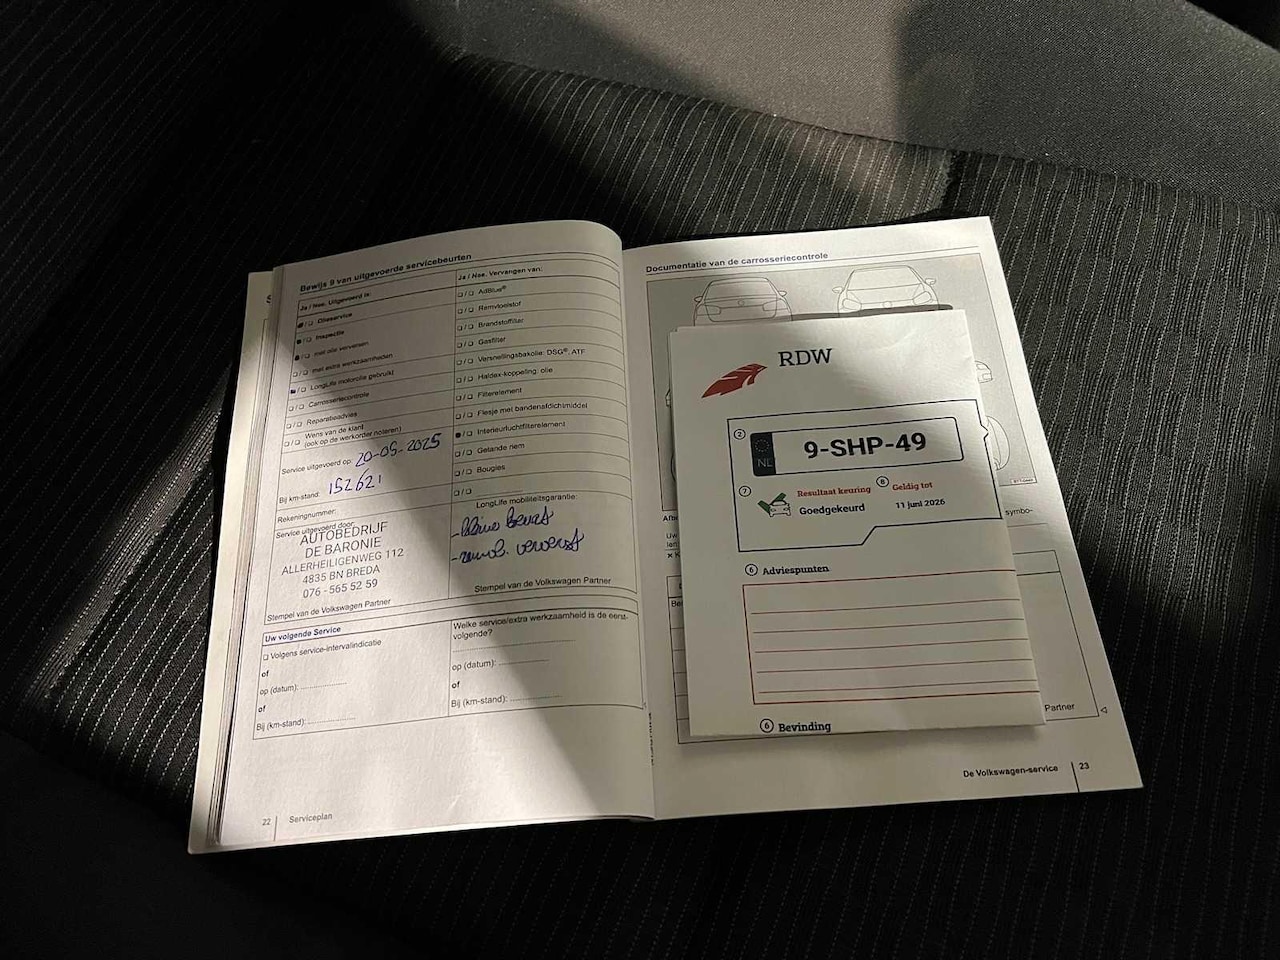 Bewijs 9 van uitgevoerde servicebeurten
Ja / Nee. Uitgevoerd is:
Olieservice
Inspectie
met olie verversen
met extra werkzaamheden
LongLife motorolie gebruikt
Carrosseriecontrole
Reparatieadvies
Wens van de klant
(ook op de werkorder noteren)
Service uitgevoerd op: 20-05-2025
Bij km-stand: 152621
Rekeningnummer:
Service uitgevoerd door:
AUTOBEDRIJF
DE BARONIE
ALLERHEILIGENWEG 112
4835 BN BREDA
076 - 565 52 59
Stempel van de Volkswagen Partner
Ja / Nee. Vervangen van:
AdBlue®
Remvloeistof
Brandstoffilter
Gasfilter
Versnellingsbakolie: DSG®, ATF
Haldex-koppeling: olie
Filterelement
Flesje met bandenafdichtmiddel
Interieurluchtfilterelement
Getande riem
Bougies
LongLife mobiliteitsgarantie:
Stempel van de Volkswagen Partner
Uw volgende Service
Volgens service-intervalindicatie
of
op (datum):
of
Bij (km-stand):
Welke service/extra werkzaamheid is de eerst-
volgende?
op (datum):
of
Bij (km-stand):
22 Serviceplan
Documentatie van de carrosseriecontrole
RDW
2
NL 9-SHP-49
7 Resultaat keuring
Goedgekeurd
8 Geldig tot
11 juni 2026
6 Adviespunten
6 Bevinding
symbo-
Partner
De Volkswagen-service 23